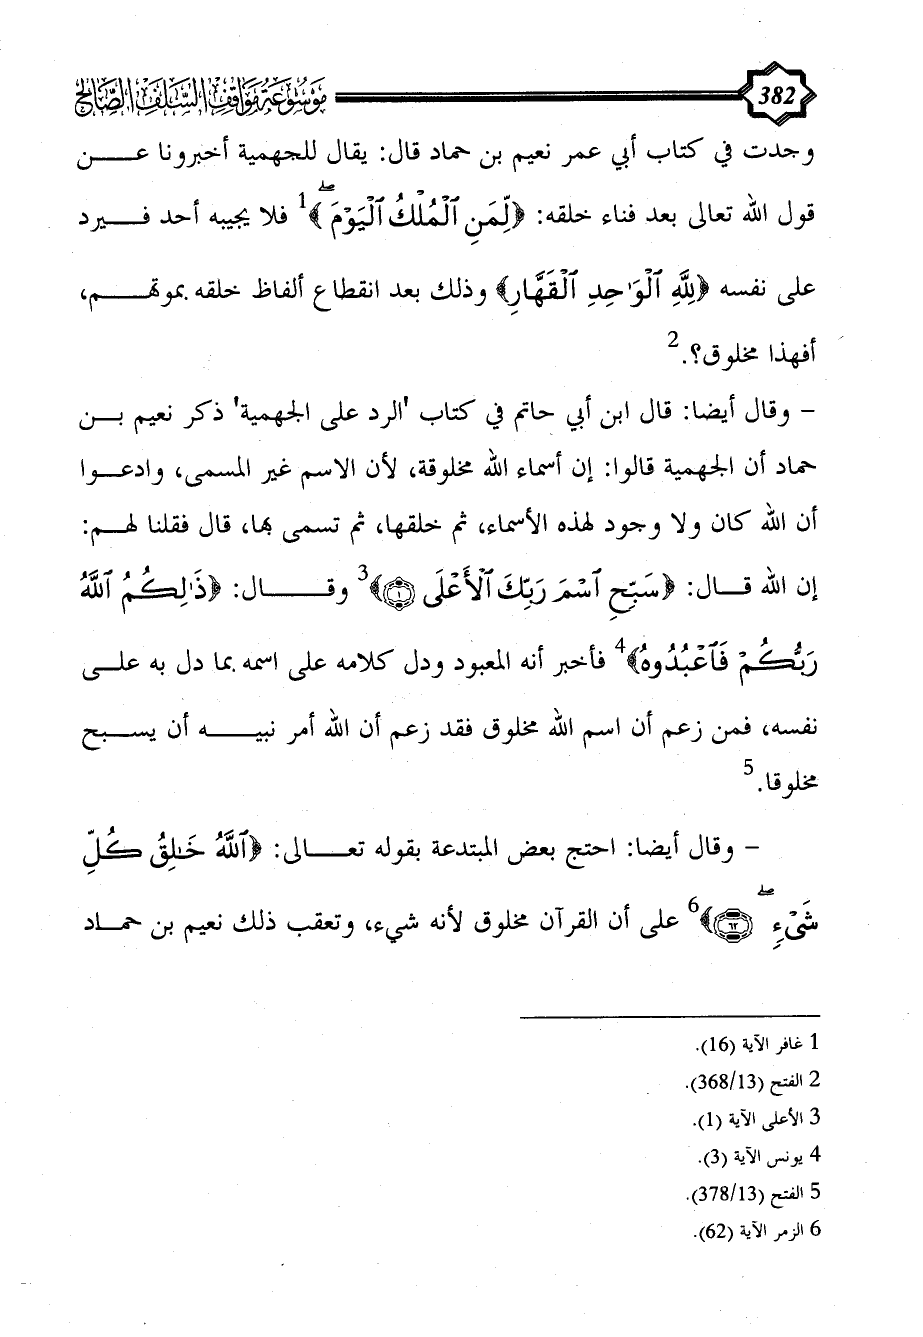 382 موسوعة مواقف السلف الصالح
وجدت في كتاب أبي عمر نعيم بن حماد قال: يقال للجهمية أخبرونا عـــن
قول الله تعالى بعد فناء خلقه: ﴿لِّمَنِ ٱلْمُلْكُ ٱلْيَوْمَۖ﴾1 فلا يجيبه أحد فـــيرد
على نفسه ﴿لِلَّهِ ٱلْوَٰحِدِ ٱلْقَهَّارِ﴾ وذلك بعد انقطاع ألفاظ خلقه بموتهـــم،
أفهذا مخلوق؟.2
– وقال أيضا: قال ابن أبي حاتم في كتاب 'الرد على الجهمية' ذكر نعيم بـــن
حماد أن الجهمية قالوا: إن أسماء الله مخلوقة، لأن الاسم غير المسمى، وادعـــوا
أن الله كان ولا وجود لهذه الأسماء، ثم خلقها، ثم تسمى بها، قال فقلنا لهـــم:
إن الله قـــال: ﴿سَبِّحِ ٱسْمَ رَبِّكَ ٱلْأَعْلَى ١﴾3 وقـــــال: ﴿ذَٰلِكُمُ ٱللَّهُ
رَبُّكُمْ فَٱعْبُدُوهُ﴾4 فأخبر أنه المعبود ودل كلامه على اسمه بما دل به علـــى
نفسه، فمن زعم أن اسم الله مخلوق فقد زعم أن الله أمر نبيـــه أن يســـبح
مخلوقا.5
– وقال أيضا: احتج بعض المبتدعة بقوله تعـــالى: ﴿ٱللَّهُ خَـٰلِقُ كُلِّ
شَىْءٍۖ ٦٢﴾6 على أن القرآن مخلوق لأنه شيء، وتعقب ذلك نعيم بن حمـــاد
1 غافر الآية (16).
2 الفتح (368/13).
3 الأعلى الآية (1).
4 يونس الآية (3).
5 الفتح (378/13).
6 الزمر الآية (62).